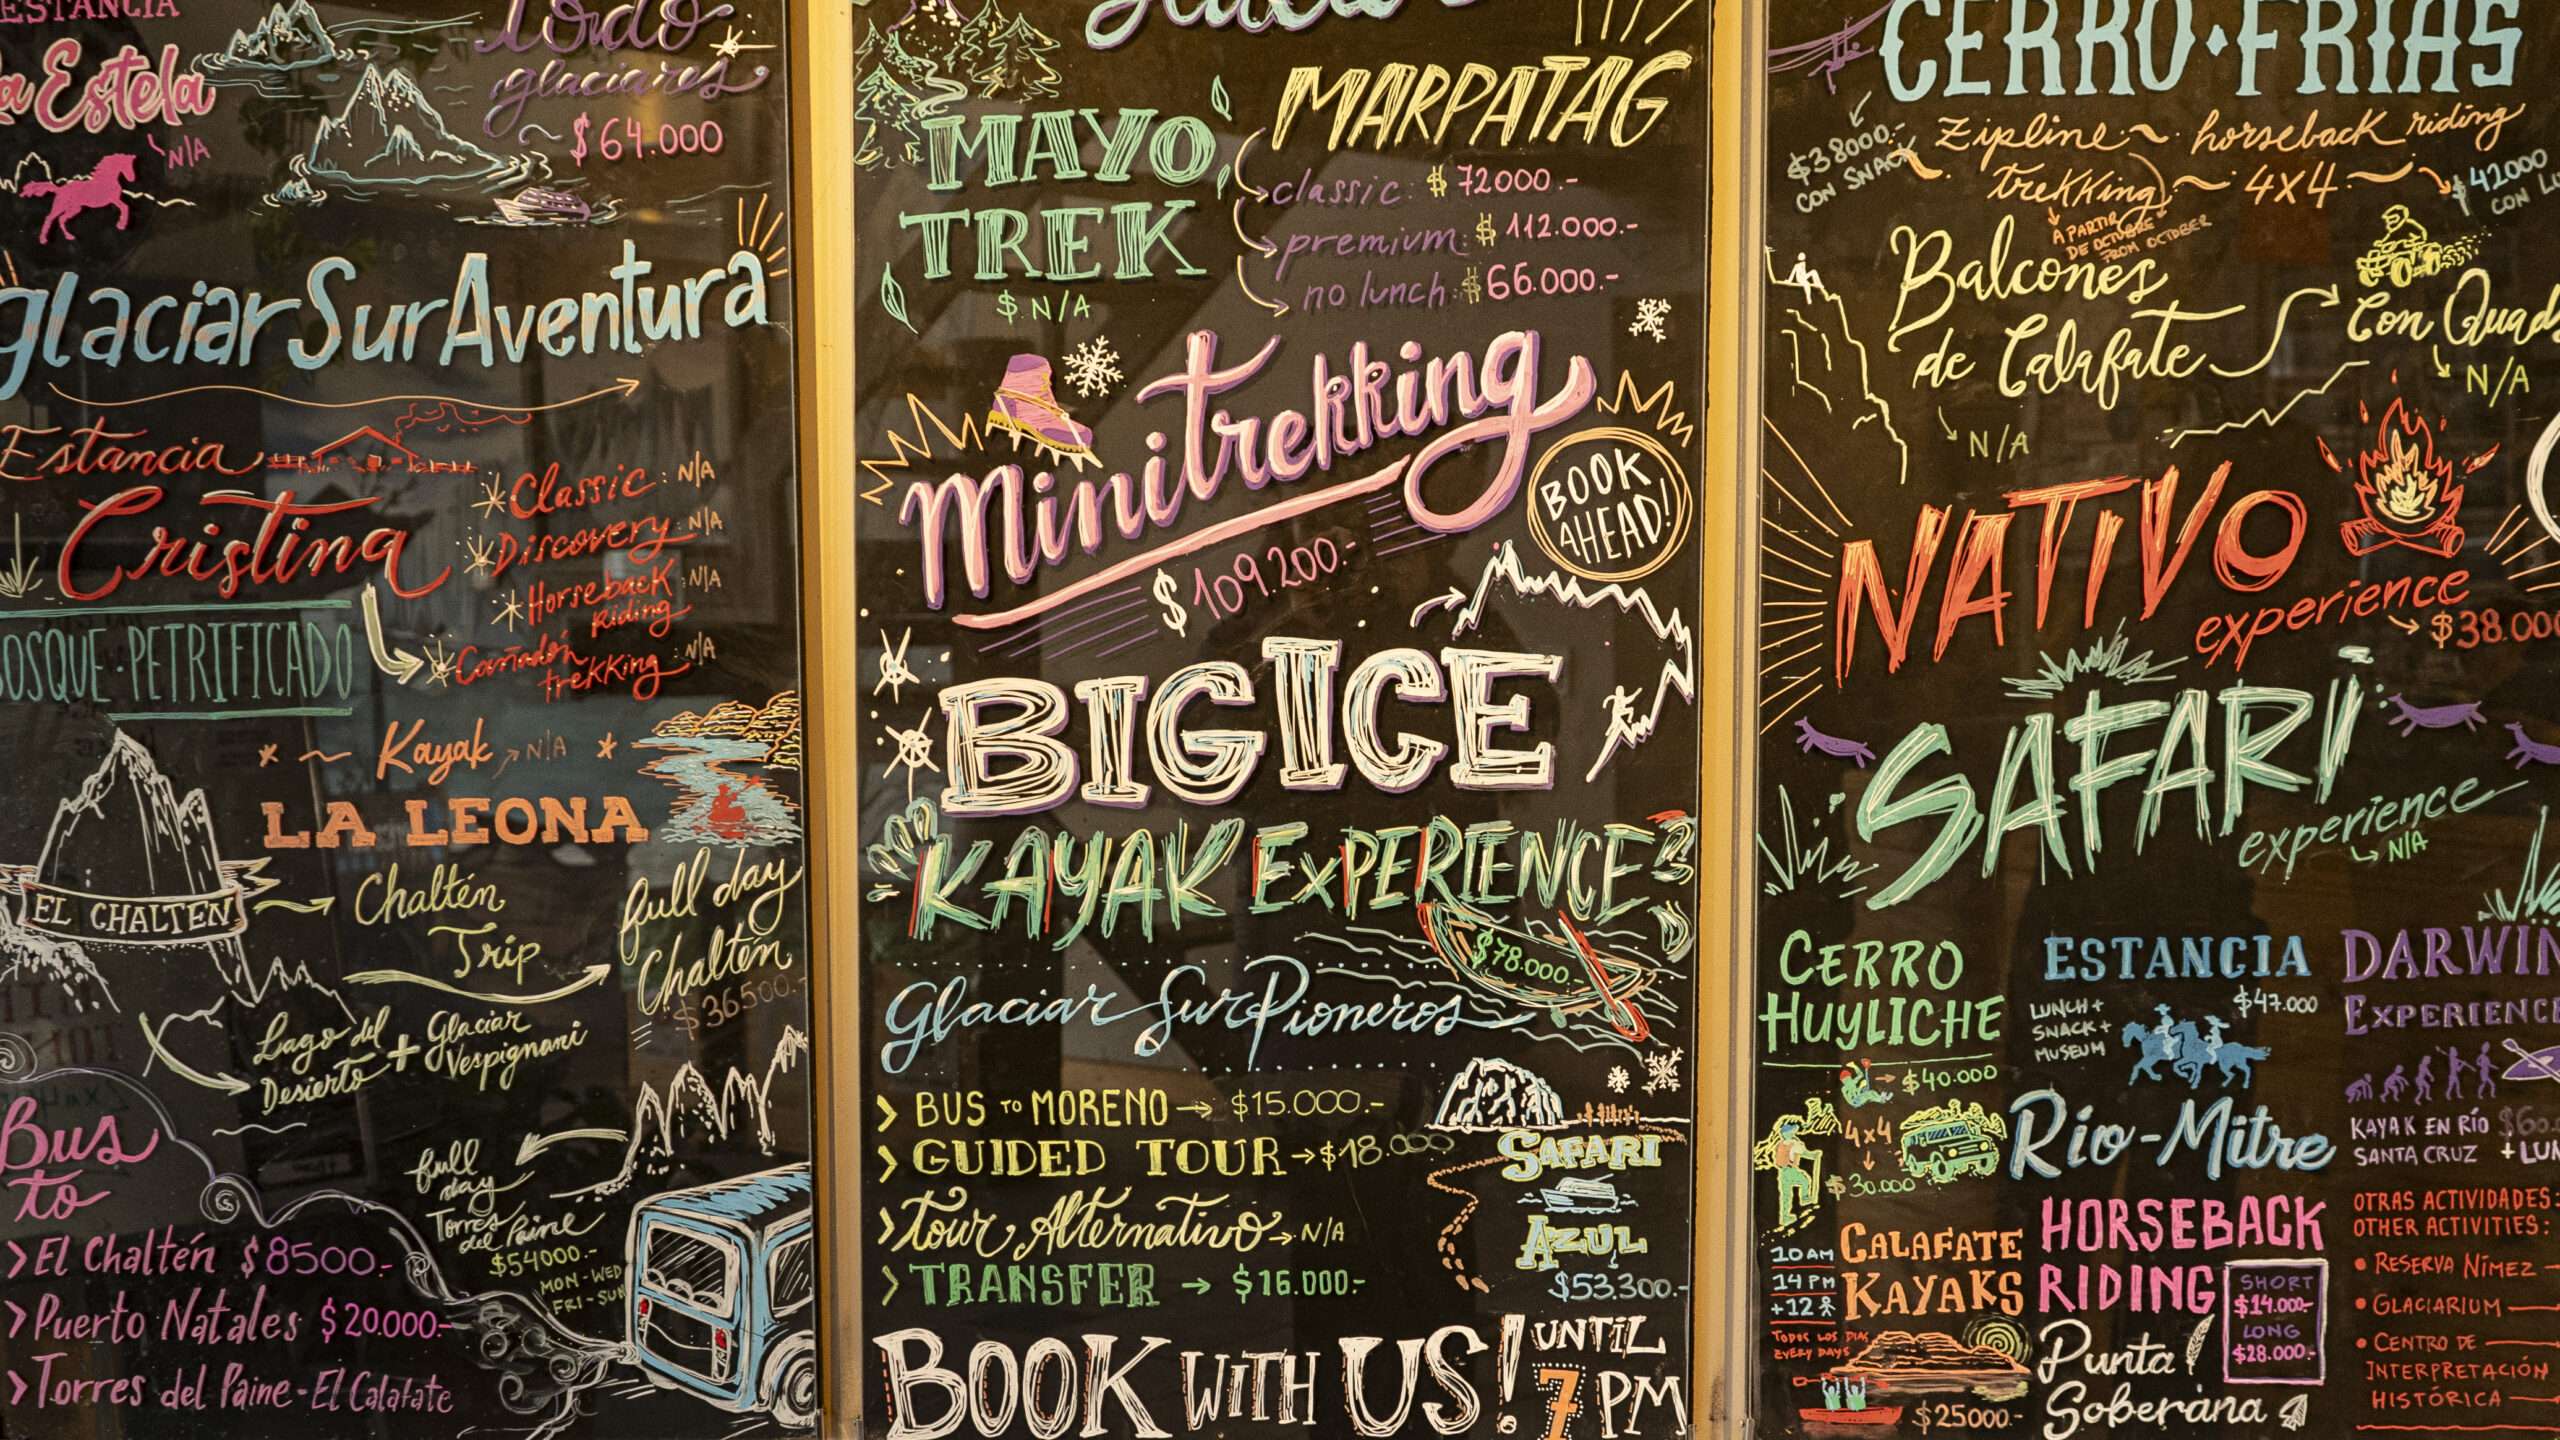 ESTANCIA
La Estela
N/A
glaciares
$64.000
glaciar Sur Aventura
Estancia
Cristina
Classic: N/A
Discovery: N/A
Horseback riding: N/A
Cañadón trekking: N/A
BOSQUE·PETRIFICADO
Kayak N/A
LA LEONA
EL CHALTEN
Chaltén
Trip
full day
Chaltén
$36500.-
Lago del
Desierto + Glaciar
Vespignani
Bus
to
El Chaltén $8500.-
Puerto Natales $20.000.-
Torres del Paine-El Calafate
full
day
Torres
del Paine
$54000.-
MON-WED
FRI-SUN
MAYO
TREK
$ N/A
MARPATAG
classic: $ 72000.-
premium: $ 112.000.-
no lunch: $ 66.000.-
Minitrekking
$ 109.200.-
BOOK
AHEAD!
BIG ICE
KAYAK EXPERIENCE
$78.000.-
Glaciar Sur Pioneros
BUS TO MORENO → $15.000.-
GUIDED TOUR → $18.000
tour Alternativo → N/A
TRANSFER → $16.000.-
SAFARI
AZUL
$53.300.-
BOOK WITH US! UNTIL
7 PM
CERRO·FRIAS
$38000.-
CON SNACK
zipline ~ horseback riding
trekking ~ 4x4
A PARTIR
DE OCTUBRE
FROM OCTOBER
$42000
CON
Balcones
de Calafate
N/A
Con Quads
N/A
NATIVO
experience
$38.000
SAFARI
experience
N/A
CERRO
HUYLICHE
$40.000
4x4
$30.000
ESTANCIA
LUNCH +
SNACK +
MUSEUM
$47.000
Río-Mitre
DARWIN
EXPERIENCE
KAYAK EN RÍO
SANTA CRUZ
10 AM
14 PM
+12
TODOS LOS DIAS
EVERY DAYS
CALAFATE
KAYAKS
$25000.-
HORSEBACK
RIDING
SHORT
$14.000.-
LONG
$28.000.-
Punta
Soberana
OTRAS ACTIVIDADES:
OTHER ACTIVITIES:
• RESERVA NÍMEZ
• GLACIARIUM
• CENTRO DE
INTERPRETACIÓN
HISTÓRICA